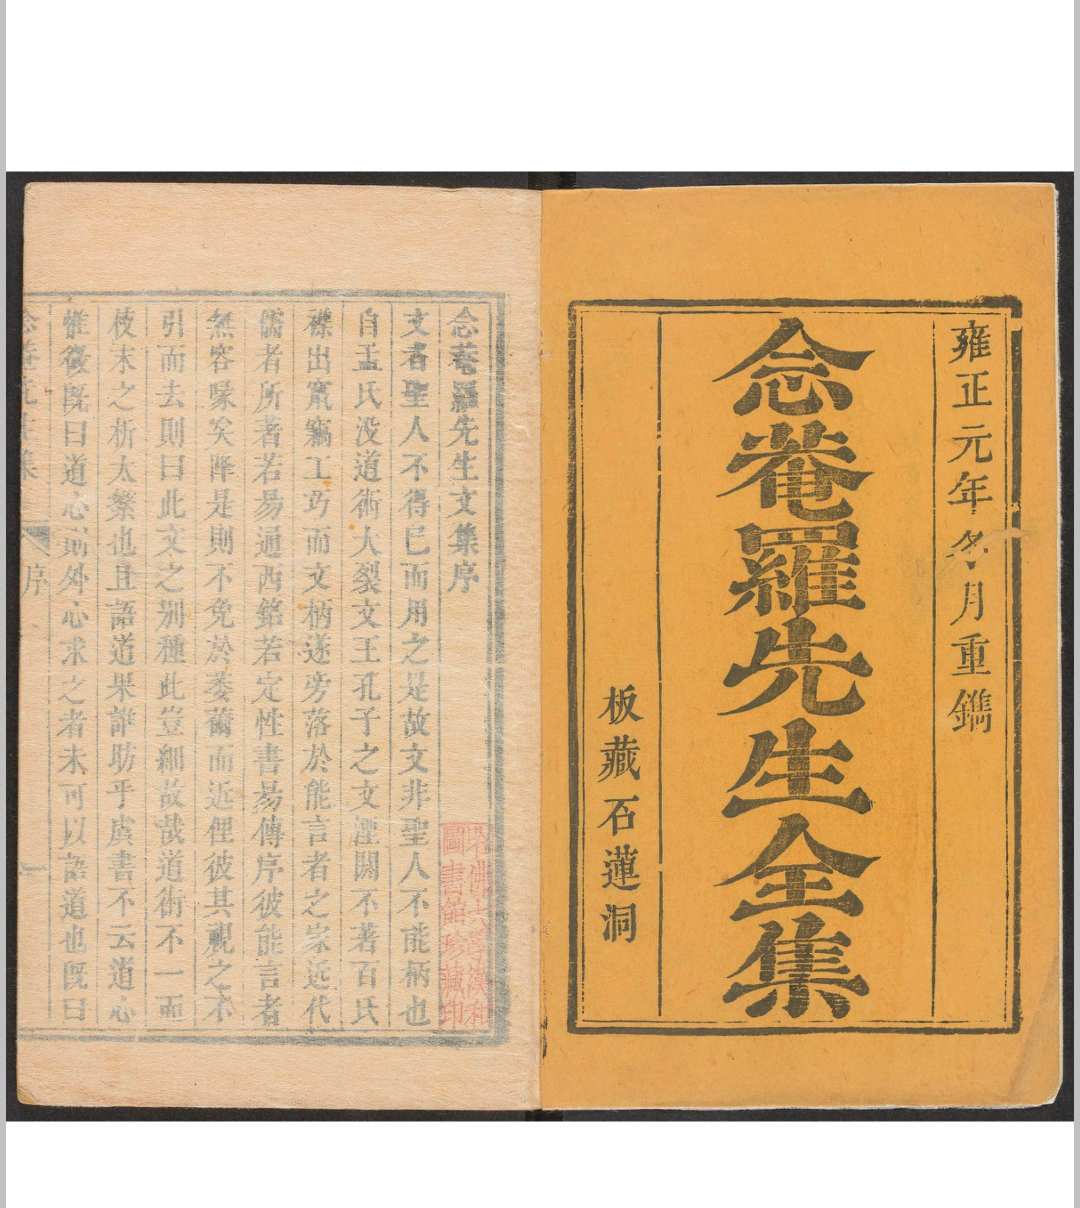 雍正元年冬月重鐫
念菴羅先生全集
板藏石蓮洞
念菴羅先生文集序
文者聖人不得已而用之是故文非聖人不能柄也
自孟氏没道術大裂文王孔子之文湮閼不著百氏
襍出竄竊工巧而文柄遂旁落於能言者之家近代
儒者所著若易通西銘若定性書易傳序彼能言者
無容喙矣降是則不免於萎薾而近俚彼其視之不
引而去則曰此文之别種此豈細故哉道術不一而
枝末之析太繁也且語道果誰昉乎虞書不云道心
惟微既曰道心則外心求之者未可以語道也既曰
序
一
哈佛大學漢和
圖書館珍藏印